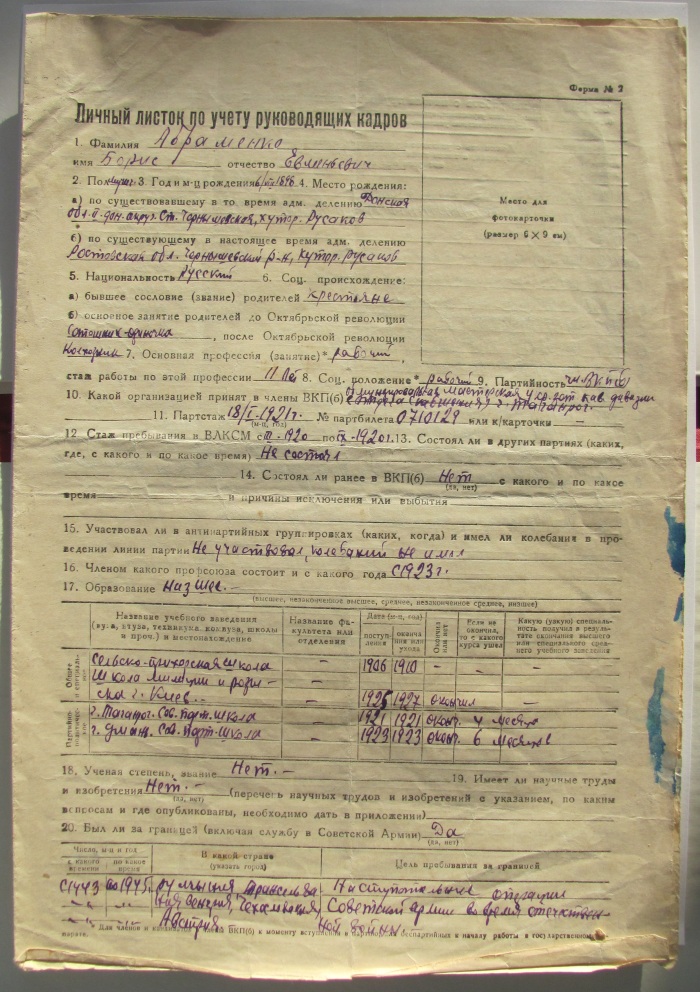 Форма № 2
Личный листок по учету руководящих кадров
1. Фамилия Абраменко
имя Борис отчество
2. Пол 3. Год и м-ц рождения 4. Место рождения:
а) по существовавшему в то время адм. делению Донская
обл. II-дон. округ. Ст. Чернышевская, хутор. Русаков
б) по существующему в настоящее время адм. делению
Ростовская обл. Чернышевский р-н, хутор. Русаков
5. Национальность Русский 6. Соц. происхождение:
а) бывшее сословие (звание) родителей Крестьяне
б) основное занятие родителей до Октябрьской революции
, после Октябрьской революции
7. Основная профессия (занятие)* рабочий,
стаж работы по этой профессии 11 лет 8. Соц. положение* рабочий 9. Партийность чл. ВКП(б)
10. Какой организацией принят в члены ВКП(б)
11. Партстаж 18/I-1921г. № партбилета 0710129 или к/карточки —
(м-ц, год)
12. Стаж пребывания в ВЛКСМ с -1920 по -1920г. 13. Состоял ли в других партиях (каких,
где, с какого и по какое время) Не состоял
14. Состоял ли ранее в ВКП(б) Нет с какого и по какое
(да, нет)
время и причины исключения или выбытия
15. Участвовал ли в антипартийных группировках (каких, когда) и имел ли колебания в про-
ведении линии партии Не участвовал, колебаний не имел
16. Членом какого профсоюза состоит и с какого года С 1923 г.
17. Образование Низшее. —
(высшее, незаконченное высшее, среднее, незаконченное среднее, низшее)
Название учебного заведения (вуза, втуза, техникума, комвуза, школы и проч.) и местонахождение
Название факультета или отделения
Дата (м-ц, год)
поступления
окончания или ухода
Окончил или нет
Если не окончил, то с какого курса ушел
Какую (узкую) специальность получил в результате окончания высшего или специального среднего учебного заведения
Общее и специальн.
Сельско-приходская школа — 1906 1910 — — —
Школа Милиции и розы-
ска г. Киев.. — 1925 1927 окончил —
г. Таганрог. Сов. парт. школа — 1921 1921 оконч. 4 месяца
Сов. парт. школа — 1923 1923 оконч. 6 месяцев
18. Ученая степень, звание Нет. — 19. Имеет ли научные труды
и изобретения Нет. — (перечень научных трудов и изобретений с указанием, по каким
(да, нет)
вопросам и где опубликованы, необходимо дать в приложении)
20. Был ли за границей (включая службу в Советской Армии) Да
(да, нет)
Число, м-ц и год
с какого времени
по какое время
В какой стране
(указать город)
Цель пребывания за границей
С 1943 по 1945г. Румыния, Наступательные операции
Венгрия, Чехословакия, Советской армии во время отечествен-
Австрия ной войны. —
Место для
фотокарточки
(размер 6 × 9 см)